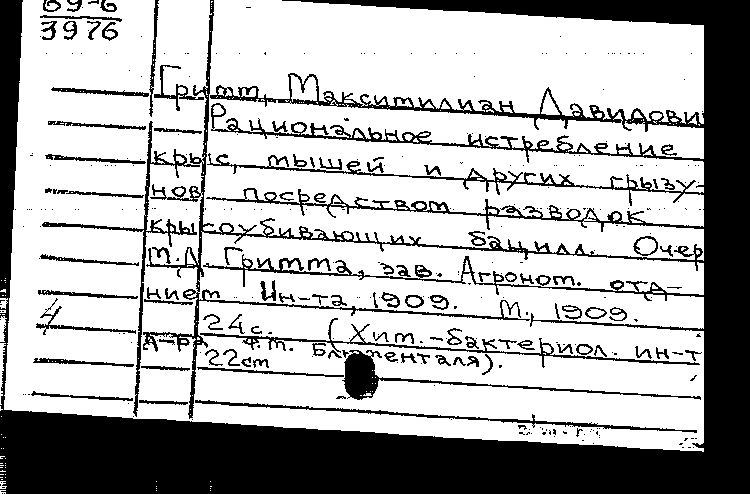 69-6
3976
Гримм, Максимилиан Давидови
Рациональное истребление
крыс, мышей и других грызу-
нов посредством разводок
крысоубивающих бацилл. Очер
М.Д. Гримма, зав. Агроном. отд-
нием Ин-та, 1909. М., 1909.
24с. (Хим.-бактериол. ин-т
д-ра Ф.М. Блюменталя).
22см
4